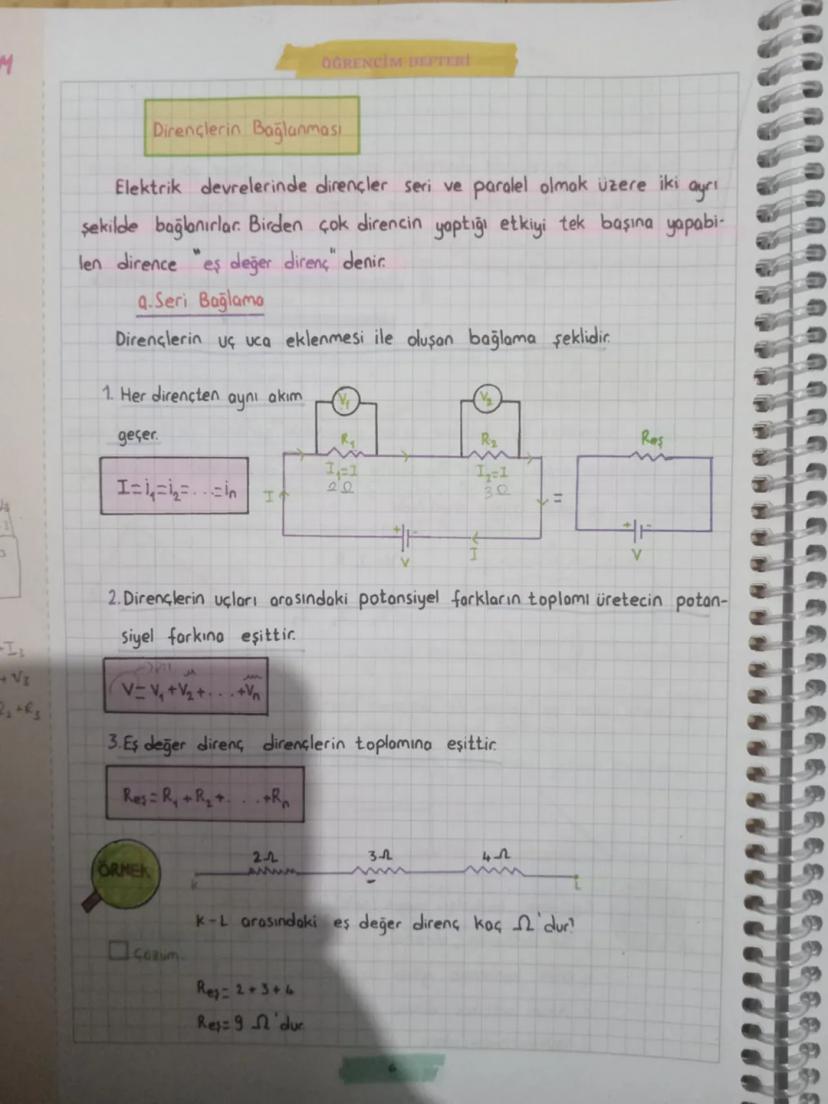 M
ÖĞRENCİM DEFTERİ
Dirençlerin Bağlanması
Elektrik devrelerinde dirençler seri ve paralel olmak üzere iki ayrı
şekilde bağlanırlar. Birden çok direncin yaptığı etkiyi tek başına yapabi-
len dirence "eş değer direnç" denir.
a. Seri Bağlama
Dirençlerin uç uca eklenmesi ile oluşan bağlama şeklidir.
1. Her dirençten aynı akım
geçer.
I=i₁=i₂=...=iₙ
V₁ V₂
R₁ R₂ Reş
I₁=I I₂=I
2Ω 3Ω
I =
+ - + -
V I V
2. Dirençlerin uçları arasındaki potansiyel farkların toplamı üretecin potan-
siyel farkına eşittir.
V=V₁+V₂+...+Vₙ
3. Eş değer direnç dirençlerin toplamına eşittir.
Reş=R₁+R₂+...+Rₙ
ÖRNEK
2Ω 3Ω 4Ω
K L
K-L arasındaki eş değer direnç kaç Ω'dur?
Çözüm
Reş=2+3+4
Reş=9 Ω'dur.
6